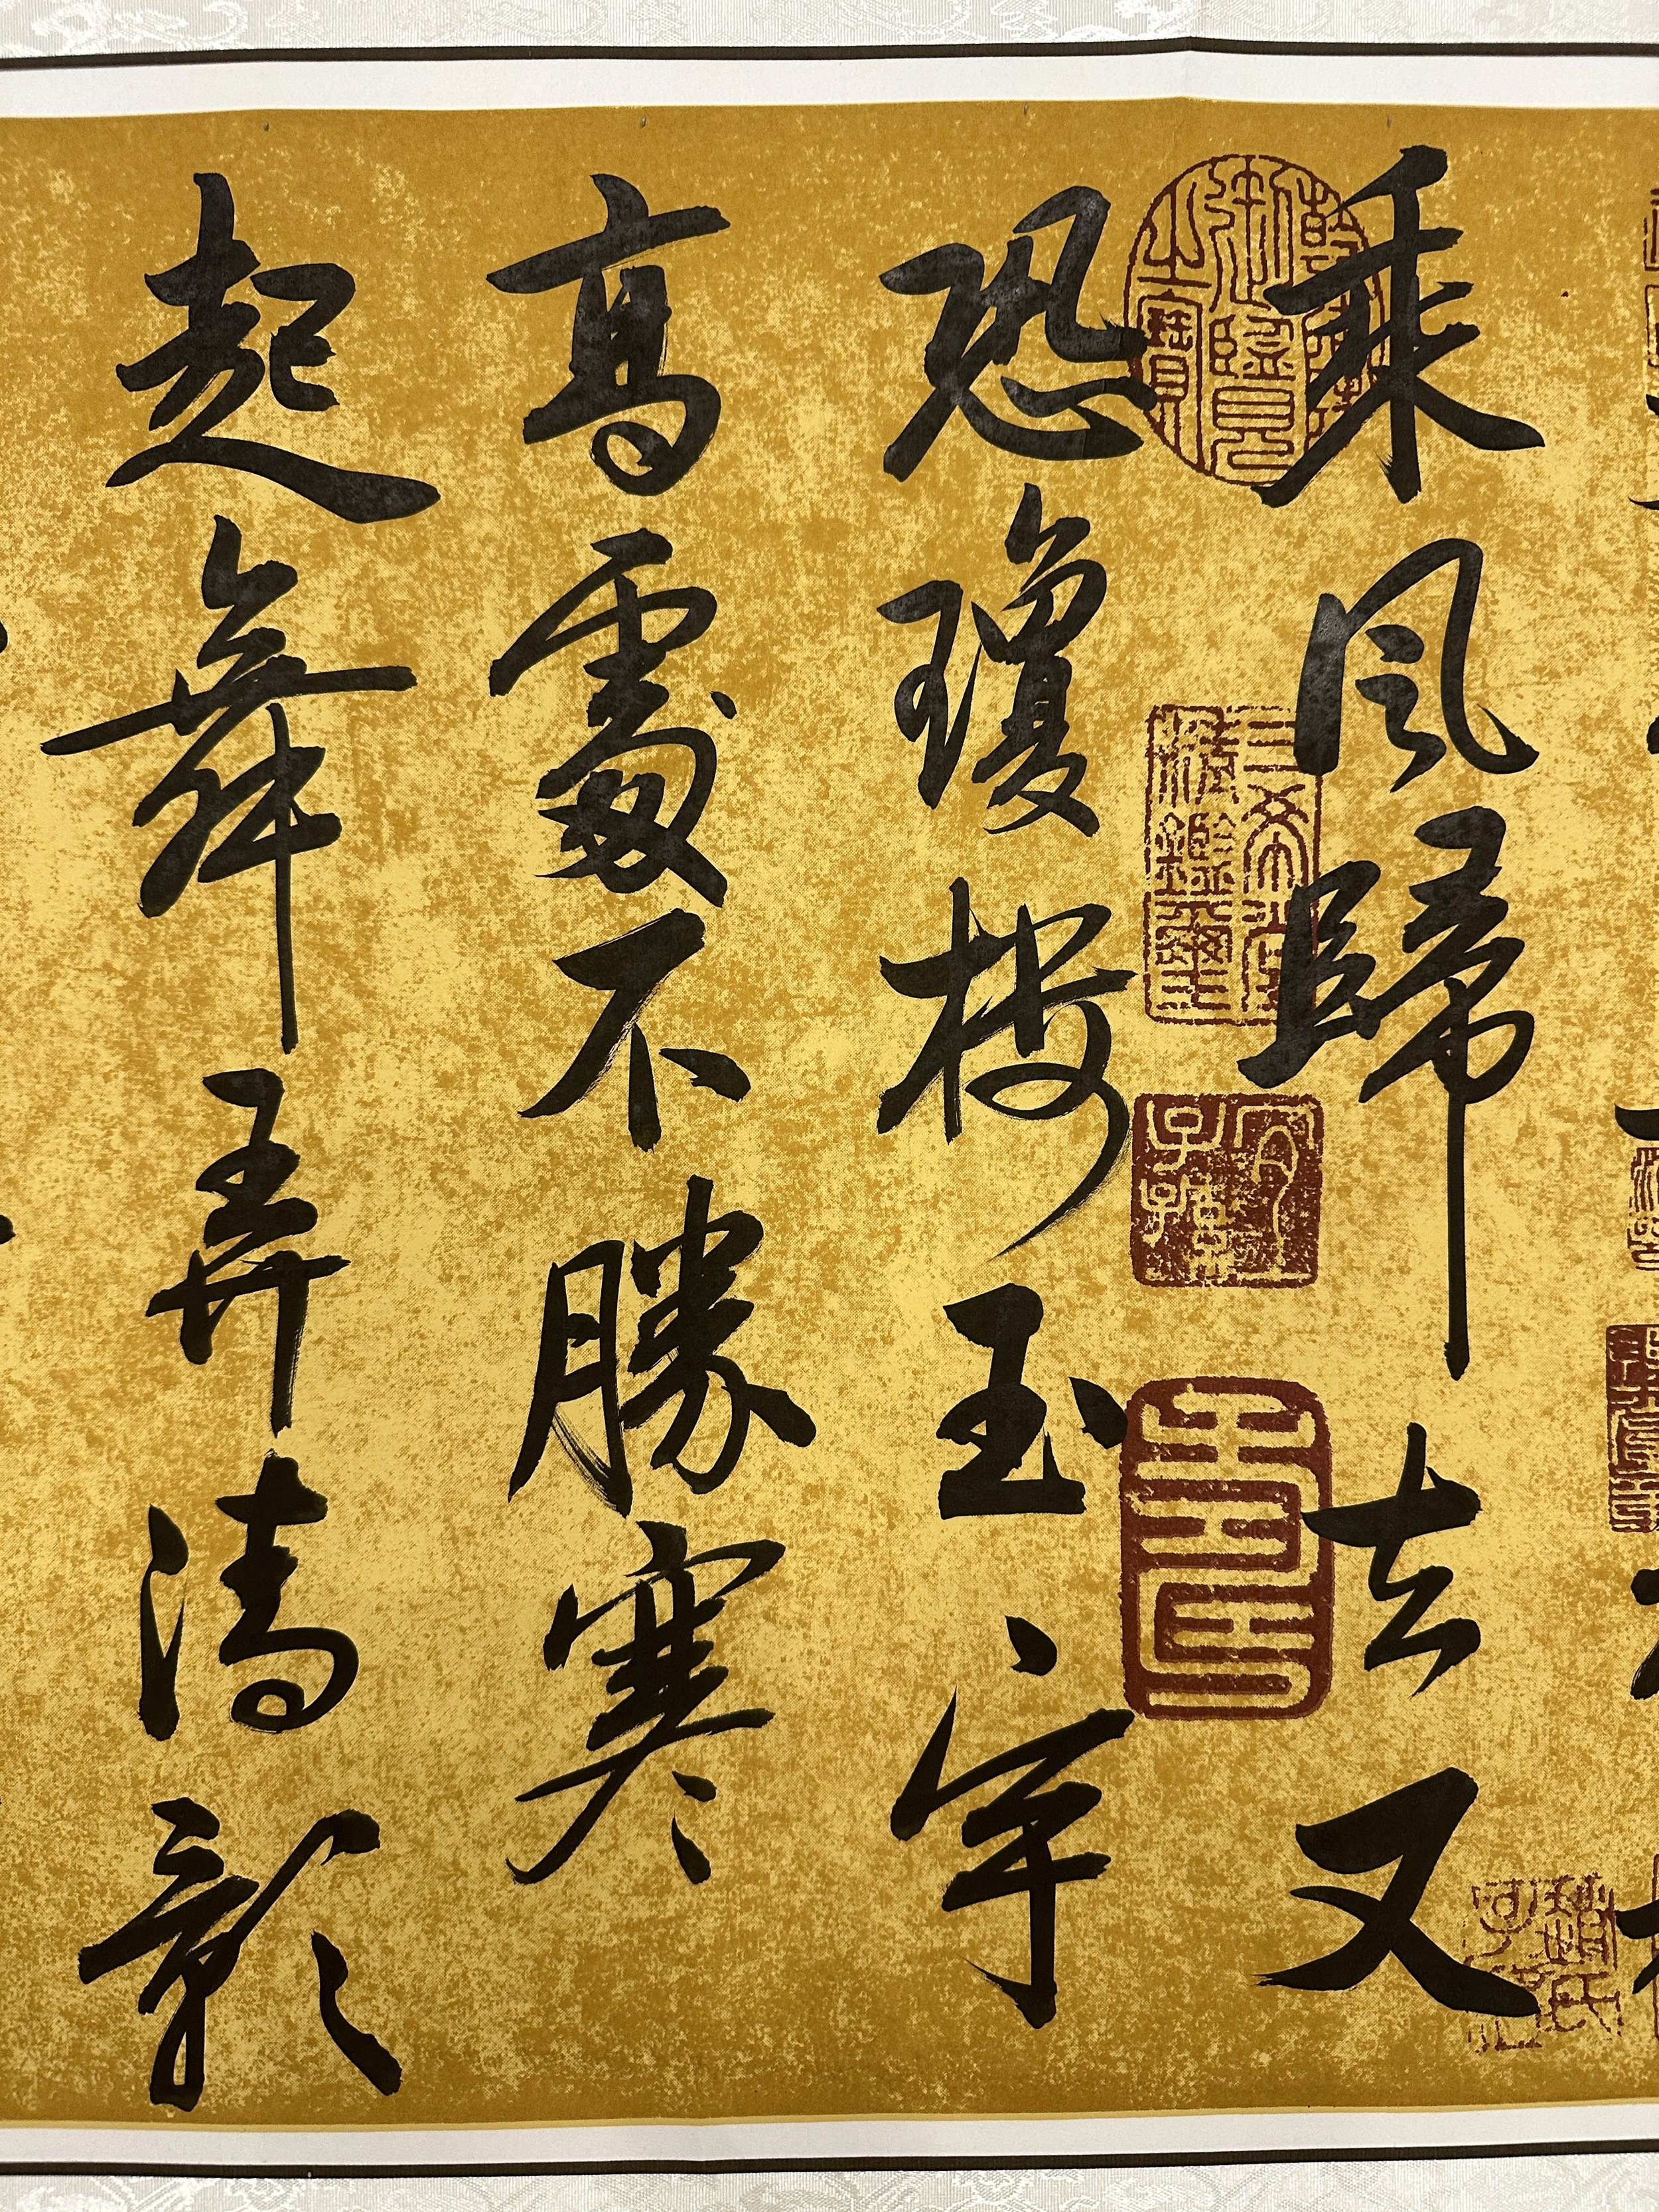 乘風歸去又
恐瓊樓玉宇
高處不勝寒
起舞弄清影